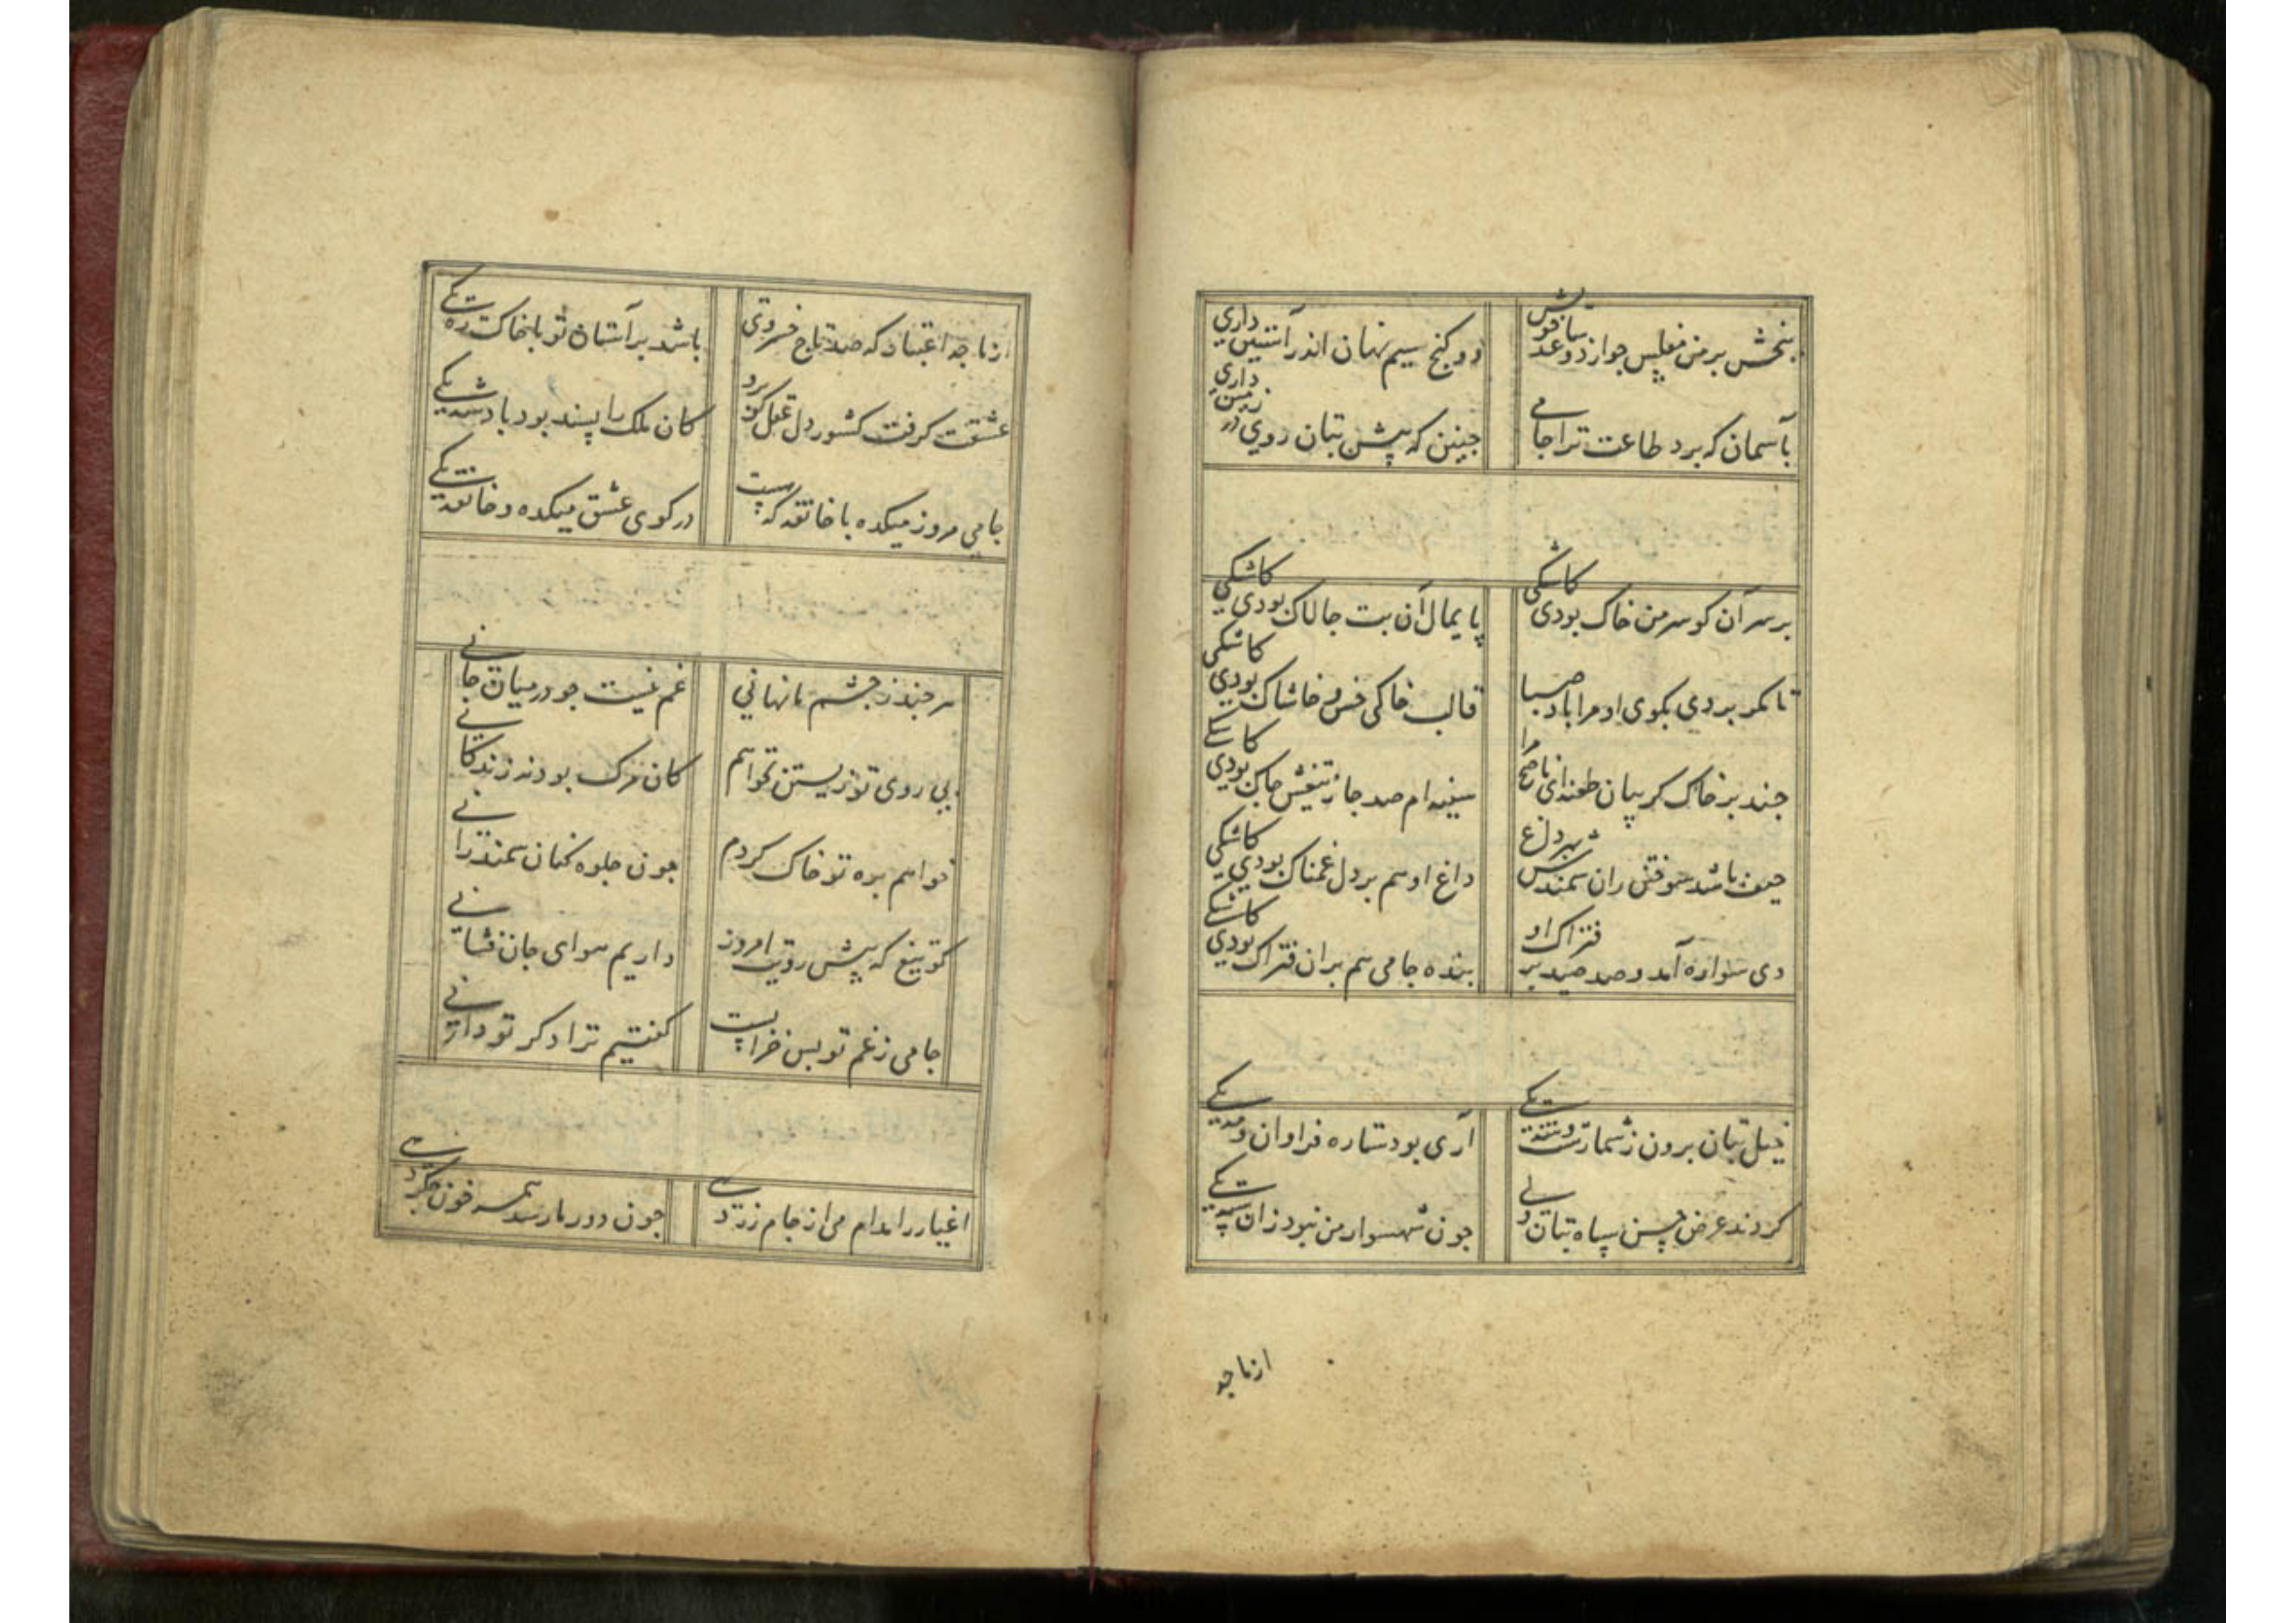 ببخش بر من مفلس جو از دو ساعد خویش
دو کنج سیم نهان اندر آستین داری
بآسمان که برد طاعت ترا جامی
جنین که پیش بتان روی در زمین داری
بر سر آن کو سر من خاک بودی کاشکی
پایمال آن بت جالاک بودی کاشکی
تا مکر بردی بکوی او مرا باد صبا
قالب خاکی خس و خاشاک بودی کاشکی
جند بر خاک کریبان طعنه ای ناصح مرا
سینه ام صد جا ز تیغش جاک بودی کاشکی
حیف باشد سوختن ران سمندش بهر داغ
داغ او هم بر دل غمناک بودی کاشکی
دی سواره آمد و صد صید بر فتراک او
بنده جامی هم بران فتراک بودی کاشکی
خیل بتان برون ز شمارست و شه یکی
آری بود ستاره فراوان و مه یکی
کردند عرض حسن سپاه بتان ولی
جون شهسوار من نبود زان سپه یکی
از ما جه
از ما جه اعتبار که صد تاج خسروی
باشد بر آستان تو با خاک ره یکی
عشقت کرفت کشور دل عقل کو برو
کان ملک را بسند بود پادشه یکی
جامی مرو ز میکده با خانقه که هست
در کوی عشق میکده و خانقه یکی
هر جند ز جشم ما نهانی
غم نیست جو در میان جانی
بی روی تو زیستن نخواهم
کان مرک بود نه زندکانی
خواهم بره تو خاک کردم
جون جلوه کنان سمند رانی
کو تیغ که پیش رویت امروز
داریم هوای جان فشانی
جامی ز غم تو بس خرابست
کفتیم ترا دکر تو دانی
اغیار را مدام می از جام زر دهی
جون دور ما رسد همه خون جکر دهی